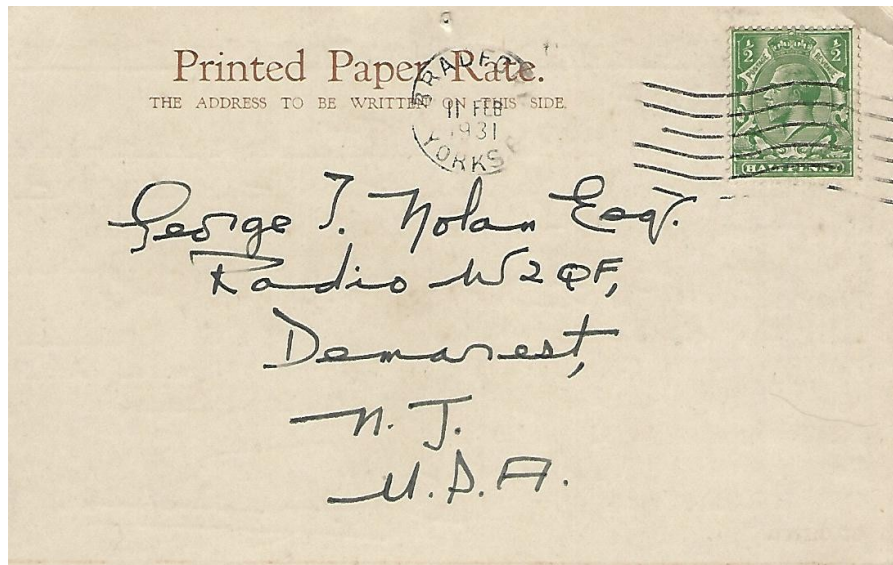 Printed Paper Rate.
THE ADDRESS TO BE WRITTEN ON THIS SIDE.
BRADFO
11 FEB
1931
YORKS
½ ½
HALFPENNY
George T. Nolan Esq.
Radio W2QF,
Demarest,
N. J.
U.S.A.